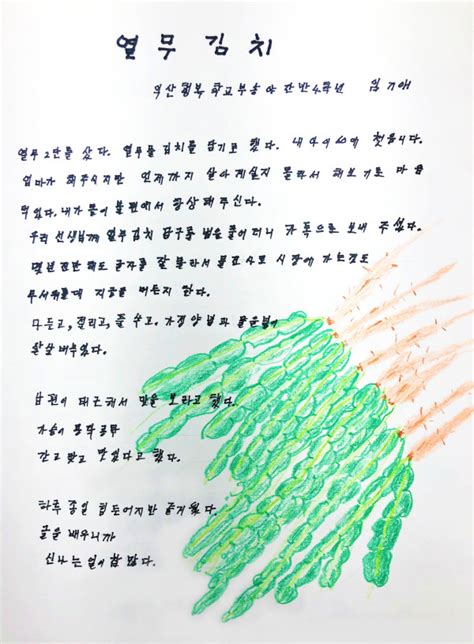 열무김치
익산행복학교부송야간반4학년 임기애
열무 2단를 샀다. 열무물김치를 담기로 했다. 내 나이 60에 첫음니다.
엄마가 해주시지만 언제까지 살아계실지 몰라서 해보기로 마음
먹었다. 내가 몸이 불편해서 항상 해주신다.
우리 선생님께 열무김치 담구는 법을 물어더니 카톡으로 보내 주셨다.
몇년 전만해도 글자를 잘 몰라서 물건 사로 시장에 가는것도
무서워는데 지금은 머든지 한다.
다듬고, 절리고, 풀 쑤고, 가정양법과
완살 배우었다.
남편이 퇴근해서 맛을 보라고 했다.
가슴이 콩닥콩닥
간고 맞고 맛있다고 했다.
하루 종일 힘든어지만 즐거웠다
글을 배우니까
신나는 일이 참 많다.